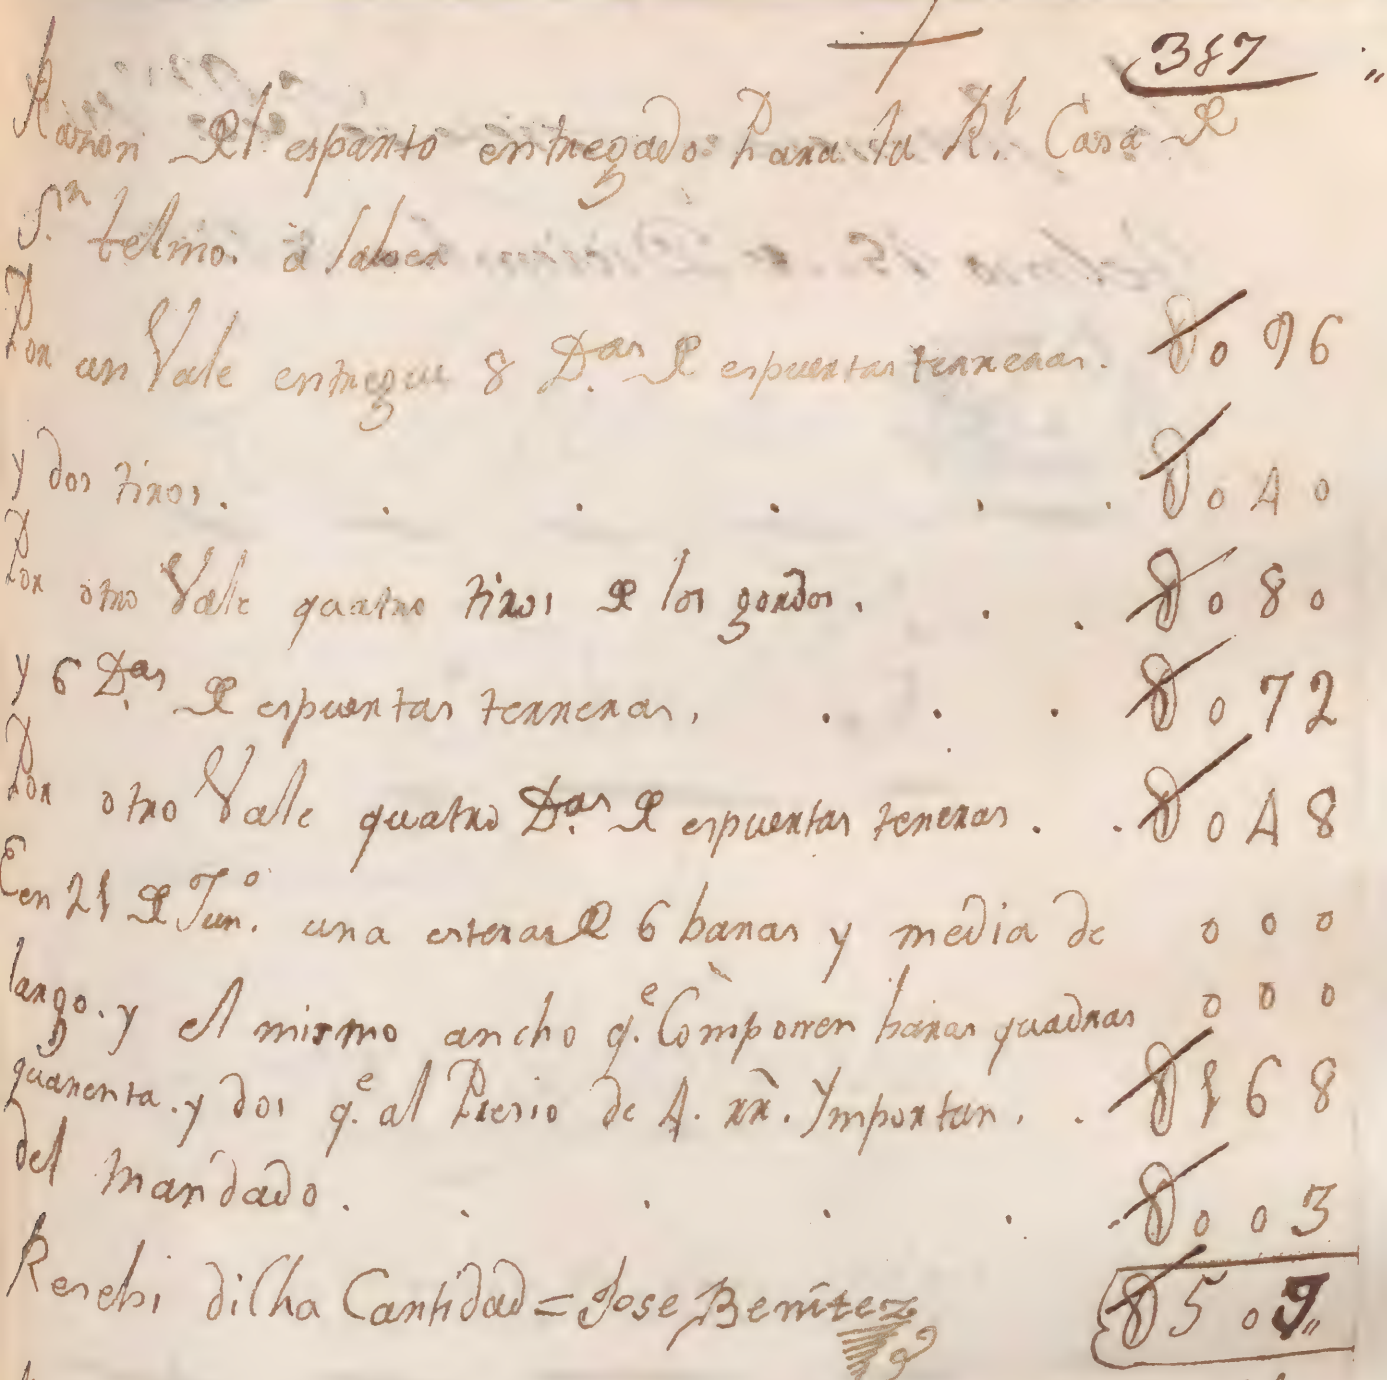 387
Rason del esparto entregado Para la R.l Casa de
S.n telmo. a saber
Por un Vale entregue 8 D.as de espuertas terreras. 0 96
y dos tiros. 0 4 0
Por otro Vale quatro tiros de los gordos. 0 8 0
y 6 D.as de espuertas terreras. 0 7 2
Por otro Vale quatro D.as de espuertas tereras. 0 4 8
En 21 de Jun.o una esteras de 6 baras y media de 0 0 0
largo. y el mismo ancho q.e Componen baras quadras 0 0 0
quarenta. y dos q.e al Presio de 4. rr. Ymportan. 1 6 8
del mandado. 0 0 3
Resebi dicha Cantidad = Jose Benitez 5 0 7